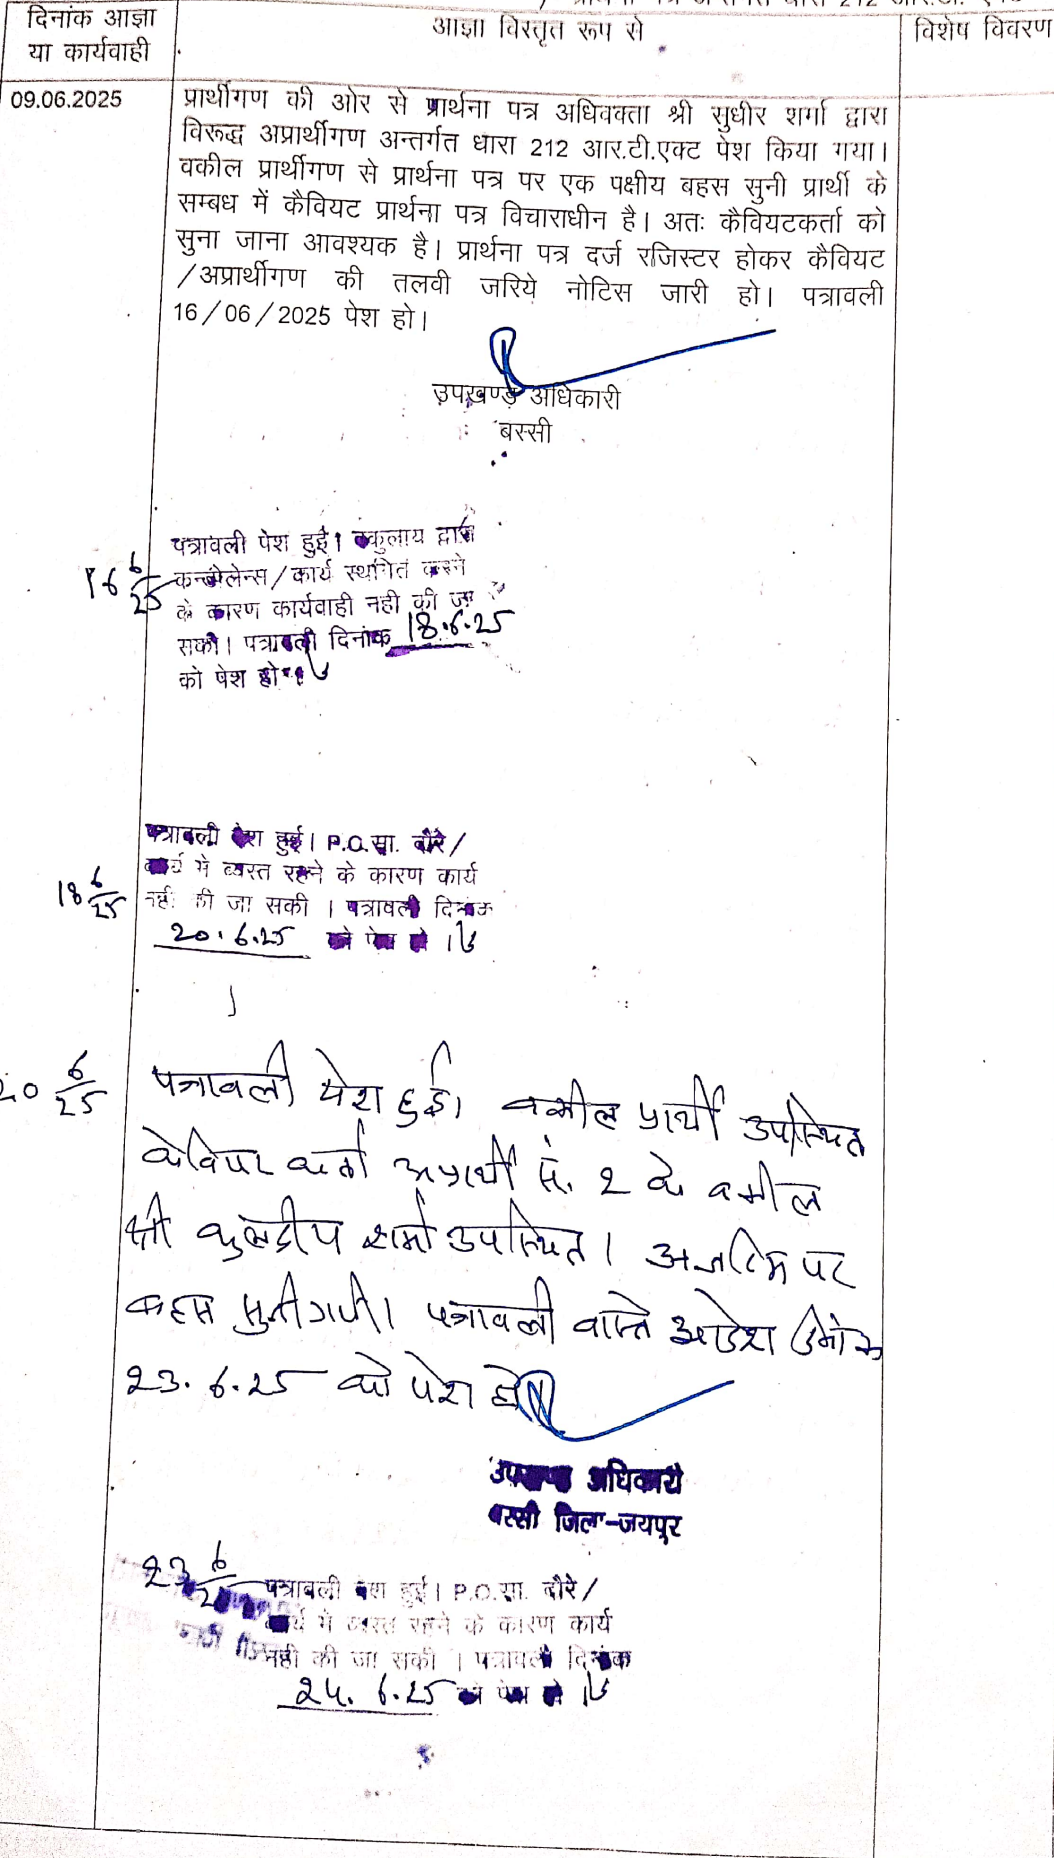 दिनांक आज्ञा
या कार्यवाही
आज्ञा विस्तृत रूप से
विशेष विवरण
09.06.2025
प्रार्थीगण की ओर से प्रार्थना पत्र अधिवक्ता श्री सुधीर शर्मा द्वारा
विरूद्ध अप्रार्थीगण अन्तर्गत धारा 212 आर.टी.एक्ट पेश किया गया।
वकील प्रार्थीगण से प्रार्थना पत्र पर एक पक्षीय बहस सुनी प्रार्थी के
सम्बध में कैवियट प्रार्थना पत्र विचाराधीन है। अतः कैवियटकर्ता को
सुना जाना आवश्यक है। प्रार्थना पत्र दर्ज रजिस्टर होकर कैवियट
/अप्रार्थीगण की तलवी जरिये नोटिस जारी हो। पत्रावली
16/06/2025 पेश हो।
उपखण्ड अधिकारी
बस्सी
16 6/25
पत्रावली पेश हुई। वकुलाय द्वारा
कन्डोलेन्स/कार्य स्थगित करने
के कारण कार्यवाही नही की जा
सकी। पत्रावली दिनांक 18.6.25
को पेश हो।
18 6/25
पत्रावली पेश हुई। P.O.सा. दौरे/
कार्य मे व्यस्त रहने के कारण कार्य
नही की जा सकी । पत्रावली दिनांक
20.6.25 को पेश हो।
20 6/25
पत्रावली पेश हुई। वकील प्रार्थी उपस्थित
केवियर कर्ता अप्रार्थी सं. 2 के वकील
श्री कुलदीप शर्मा उपस्थित। अन्तरिम पर
बहस सुनी गयी। पत्रावली वास्ते आदेश दिनांक
23.6.25 को पेश हो
उपखण्ड अधिकारी
बस्सी जिला-जयपुर
23 6/25
पत्रावली पेश हुई। P.O.सा. दौरे/
कार्य मे व्यस्त रहने के कारण कार्य
नही की जा सकी । पत्रावली दिनांक
24.6.25 को पेश हो।